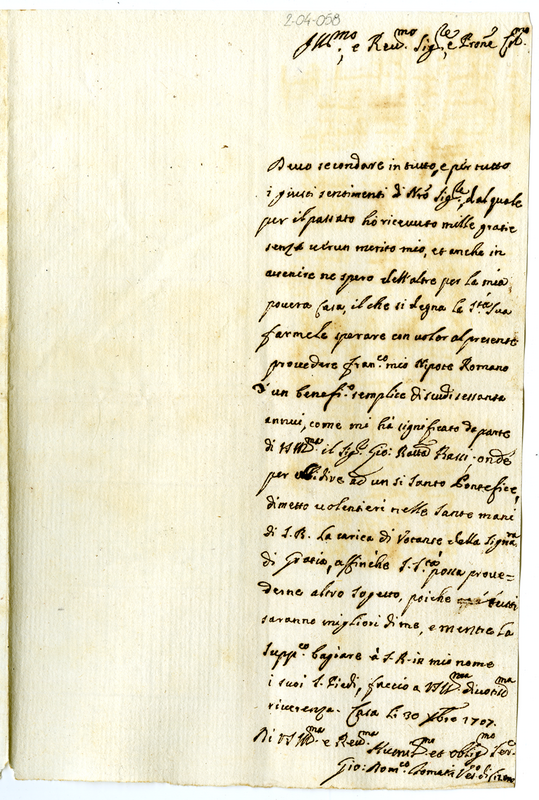 2-04-058
Ill.mo, e Reu.mo Sig.re, e Prone Col.mo
Deuo secondare in tutto, e per tutto
i giusti sentimenti di Nro Sig.re, dal quale
per il passato hò riceuuto mille gratie
senza uerun merito mio, et anche in
auenire ne spero dell'altre per la mia
pouera Casa, il che si degna la S.tà Sua
farmele sperare con voler al presente
prouedere Fran.co mio Nipote Romano
d'un benef.o semplice di scudi sessanta
annui, come mi hà significato da parte
di VS Ill.ma il Sig.r Gio: Batta Bassi; onde
per vbidire ad un si Santo Pontefice,
dimetto uolentieri nelle Sante mani
di S.B. la carica di Votante della Signra
di Gratia, affinche S.S.tà possa proue=
derne altro sogetto, poiche tutti
saranno migliori di me, e mentre la
supp.co bagiare à S.B. in mio nome
i suoi S. Piedi, faccio a VS Ill.ma diuotis.ma
riuerenza. Casa li 30 Xbre 1707.
Di VS Ill.ma e Reu.ma
Humil.mo et oblig.mo Ser.e
Gio: Dom.co Ves.o di